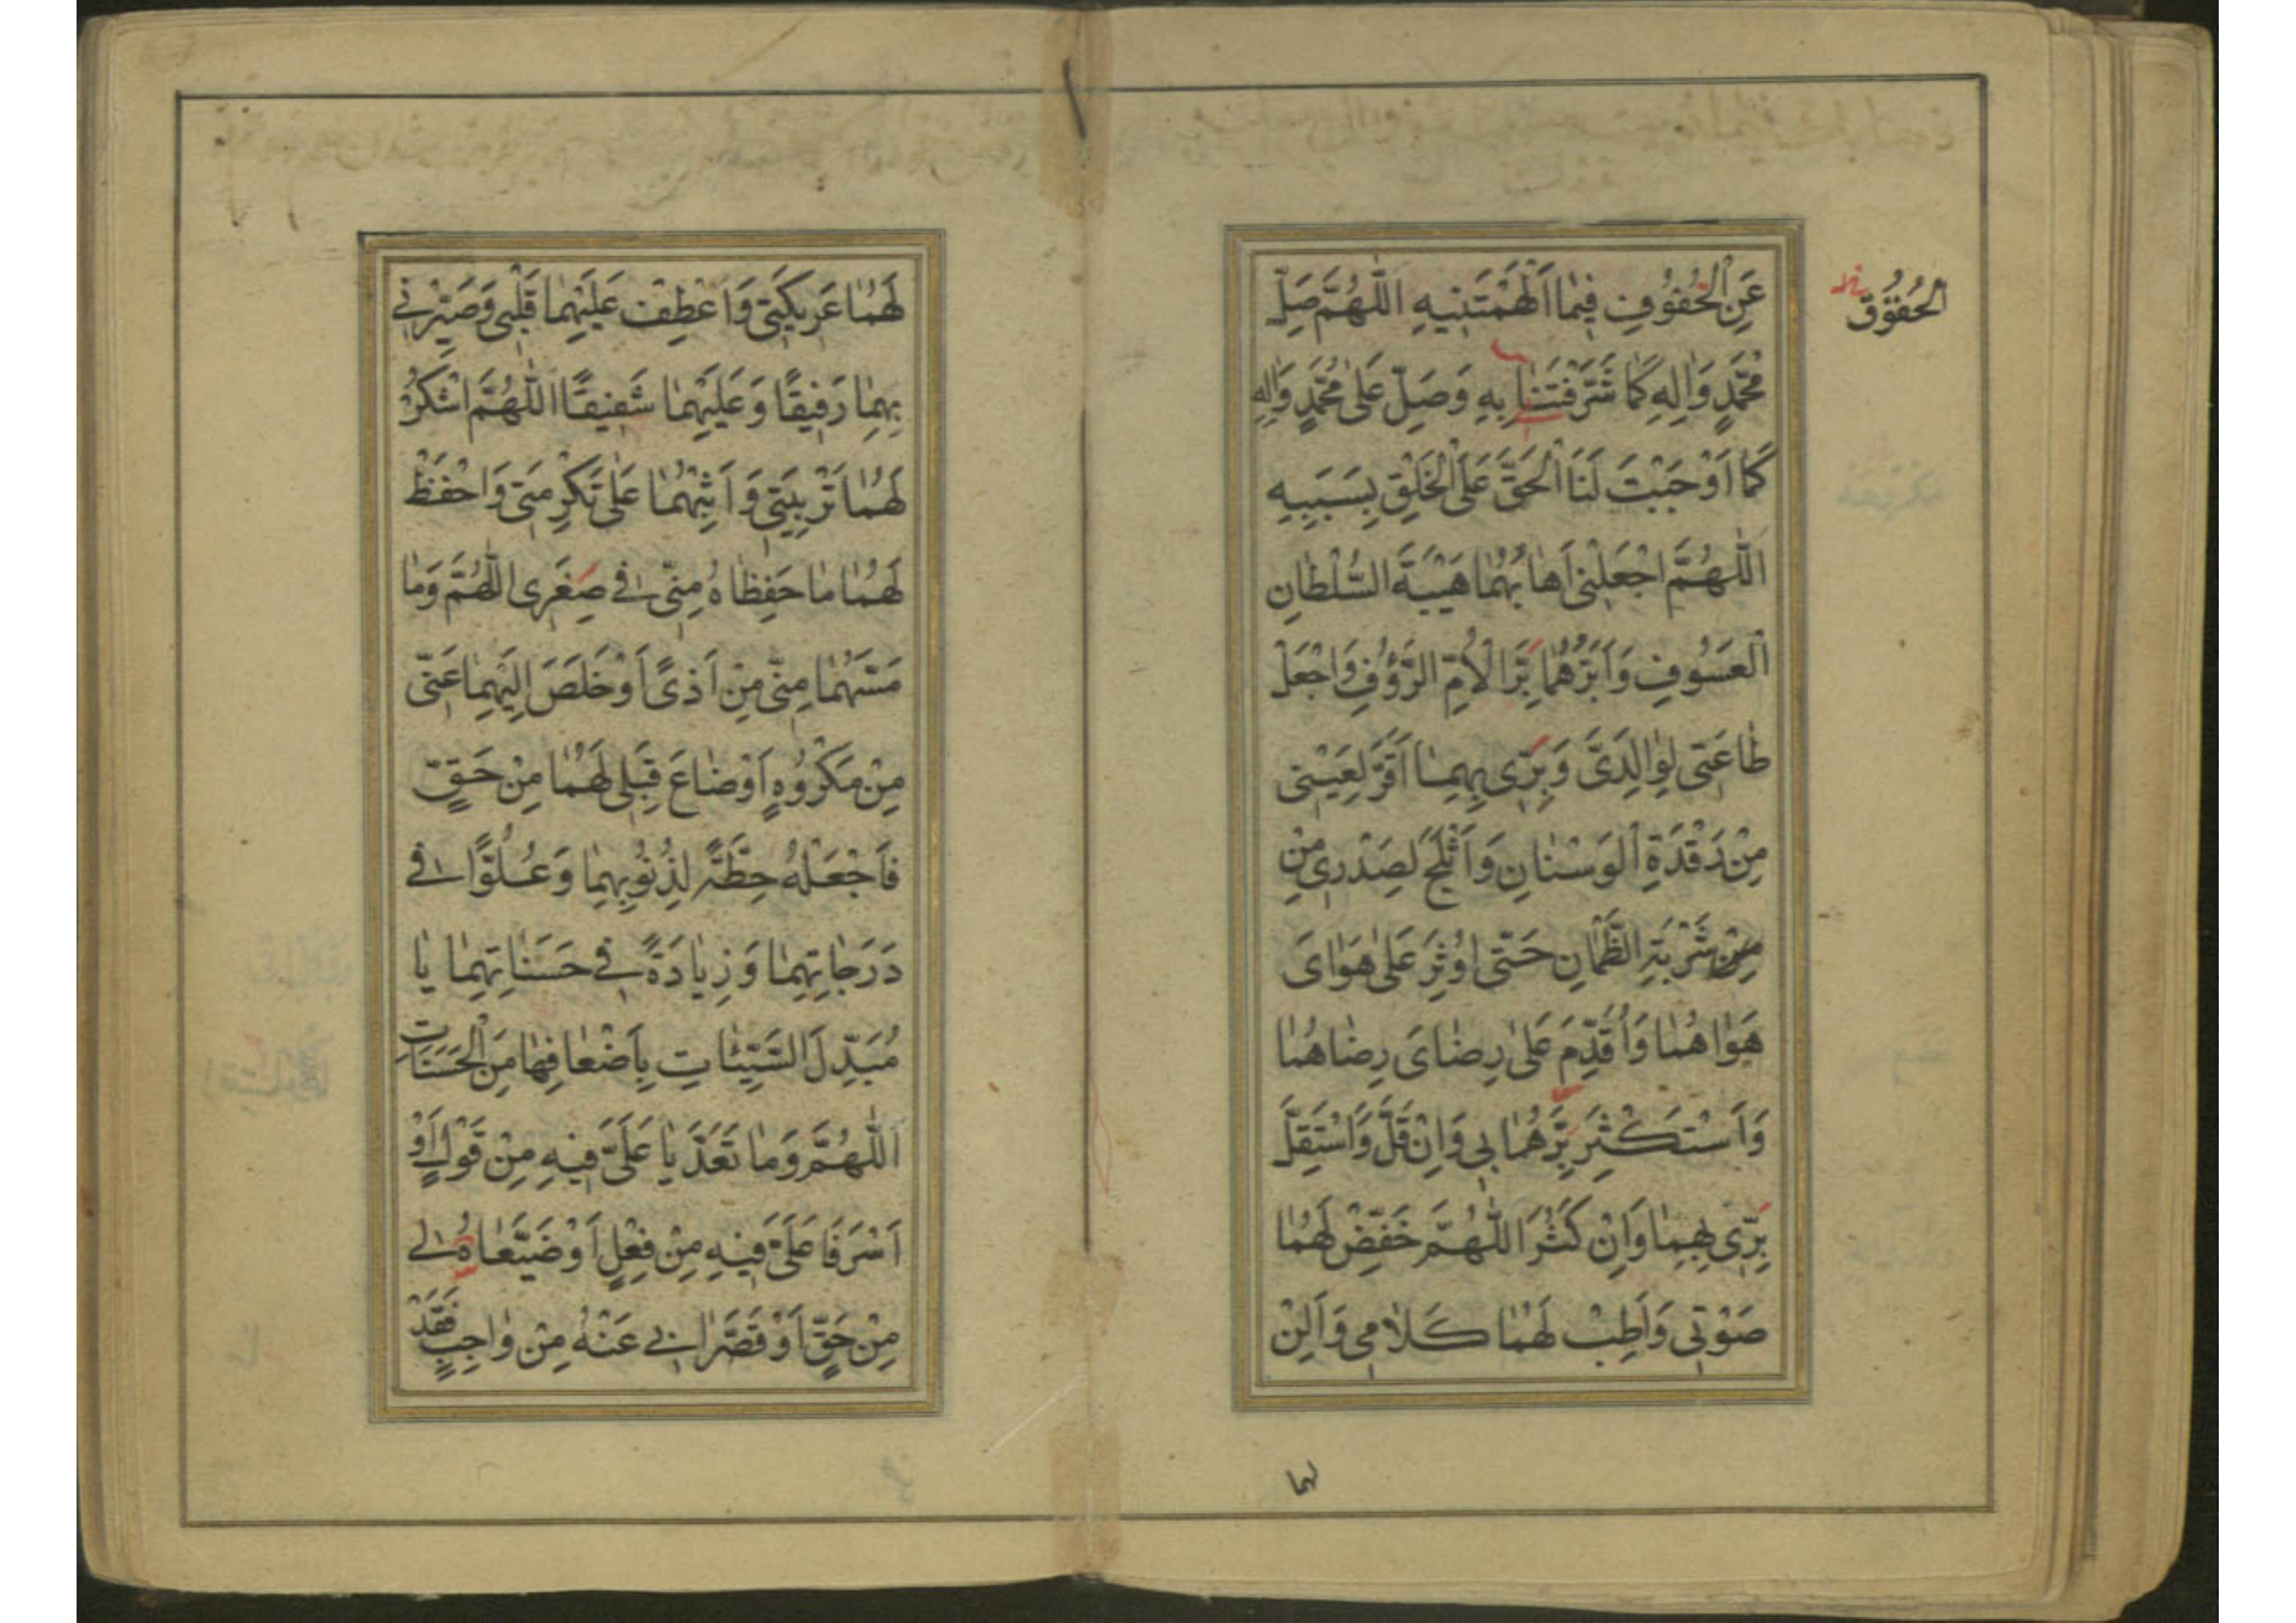 عَنِ الْحُفُوفِ فِيمٰا اَلْهَمْتَنيهِ اَللّٰهُمَّ صَلِّ
الْحُقُوقِ
مُحَمَّدٍ وَاٰلِهِ كَمٰا شَرَّفْتَنٰا بِهِ وَصَلِّ عَلىٰ مُحَمَّدٍ وَاٰلِهِ
كَمٰا اَوْجَبْتَ لَنَا الْحَقَّ عَلَى الْخَلْقِ بِسَبَبِهِ
اَللّٰهُمَّ اجْعَلْنى اَهٰابُهُمٰا هَيْبَةَ السُّلْطٰانِ
الْعَسُوفِ وَاَبَرُّهُمٰا بَِرَّ الْاُمِّ الرَّؤُفِ وَاجْعَلْ
طٰاعَتى لِوٰالِدَىَّ وَبِرّى بِهِمٰا اَقَرَّ لِعَيْنى
مِنْ رَقْدَةِ الْوَسْنٰانِ وَاَثْلَجَ لِصَدْرى مِنْ
مِنْ شَرْبَةِ الظَّمْاٰنِ حَتّٰى اُوثِرَ عَلىٰ هَوٰاىَ
هَوٰاهُمٰا وَاُقَدِّمَ عَلىٰ رِضٰاىَ رِضٰاهُمٰا
وَاَسْتَكْثِرَ بِرَّهُمٰا بى وَاِنْ قَلَّ وَاَسْتَقِلَّ
بِرّى بِهِمٰا وَاِنْ كَثُرَ اَللّٰهُمَّ خَفِّضْ لَهُمٰا
صَوْتى وَاَطِبْ لَهُمٰا كَلاٰمى وَاَلِنْ
لهما
لَهُمٰا عَريكَتى وَاَعْطِفْ عَلَيْهِمٰا قَلْبى وَصَيِّرْنى
بِهِمٰا رَفيقًا وَعَلَيْهِمٰا شَفيقًا اَللّٰهُمَّ اشْكُرْ
لَهُمٰا تَرْبِيَتى وَاَثِبْهُمٰا عَلىٰ تَكْرِمَتى وَاحْفَظْ
لَهُمٰا مٰا حَفِظٰاهُ مِنّى فى صِغَرى اَللّٰهُمَّ وَمٰا
مَسَّهُمٰا مِنّى مِنْ اَذىً اَوْ خَلَصَ اِلَيْهِمٰا عَنّى
مِنْ مَكْرُوهٍ اَوْ ضٰاعَ قِبَلى لَهُمٰا مِنْ حَقٍّ
فَاجْعَلْهُ حِطَّةً لِذُنُوبِهِمٰا وَعُلُوًّا فى
دَرَجٰاتِهِمٰا وَزِيٰادَةً فى حَسَنٰاتِهِمٰا يٰا
مُبَدِّلَ السَّيِّئٰاتِ بِاَضْعٰافِهٰا مِنَ الْحَسَنٰاتِ
اَللّٰهُمَّ وَمٰا تَعَدَّيٰا عَلَىَّ فيهِ مِنْ قَوْلٍ اَوْ
اَسْرَفٰا عَلَىَّ فيهِ مِنْ فِعْلٍ اَوْ ضَيَّعٰاهُ لى
مِنْ حَقٍّ اَوْ قَصَّرٰا بى عَنْهُ مِنْ وٰاجِبٍ فَقَدْ